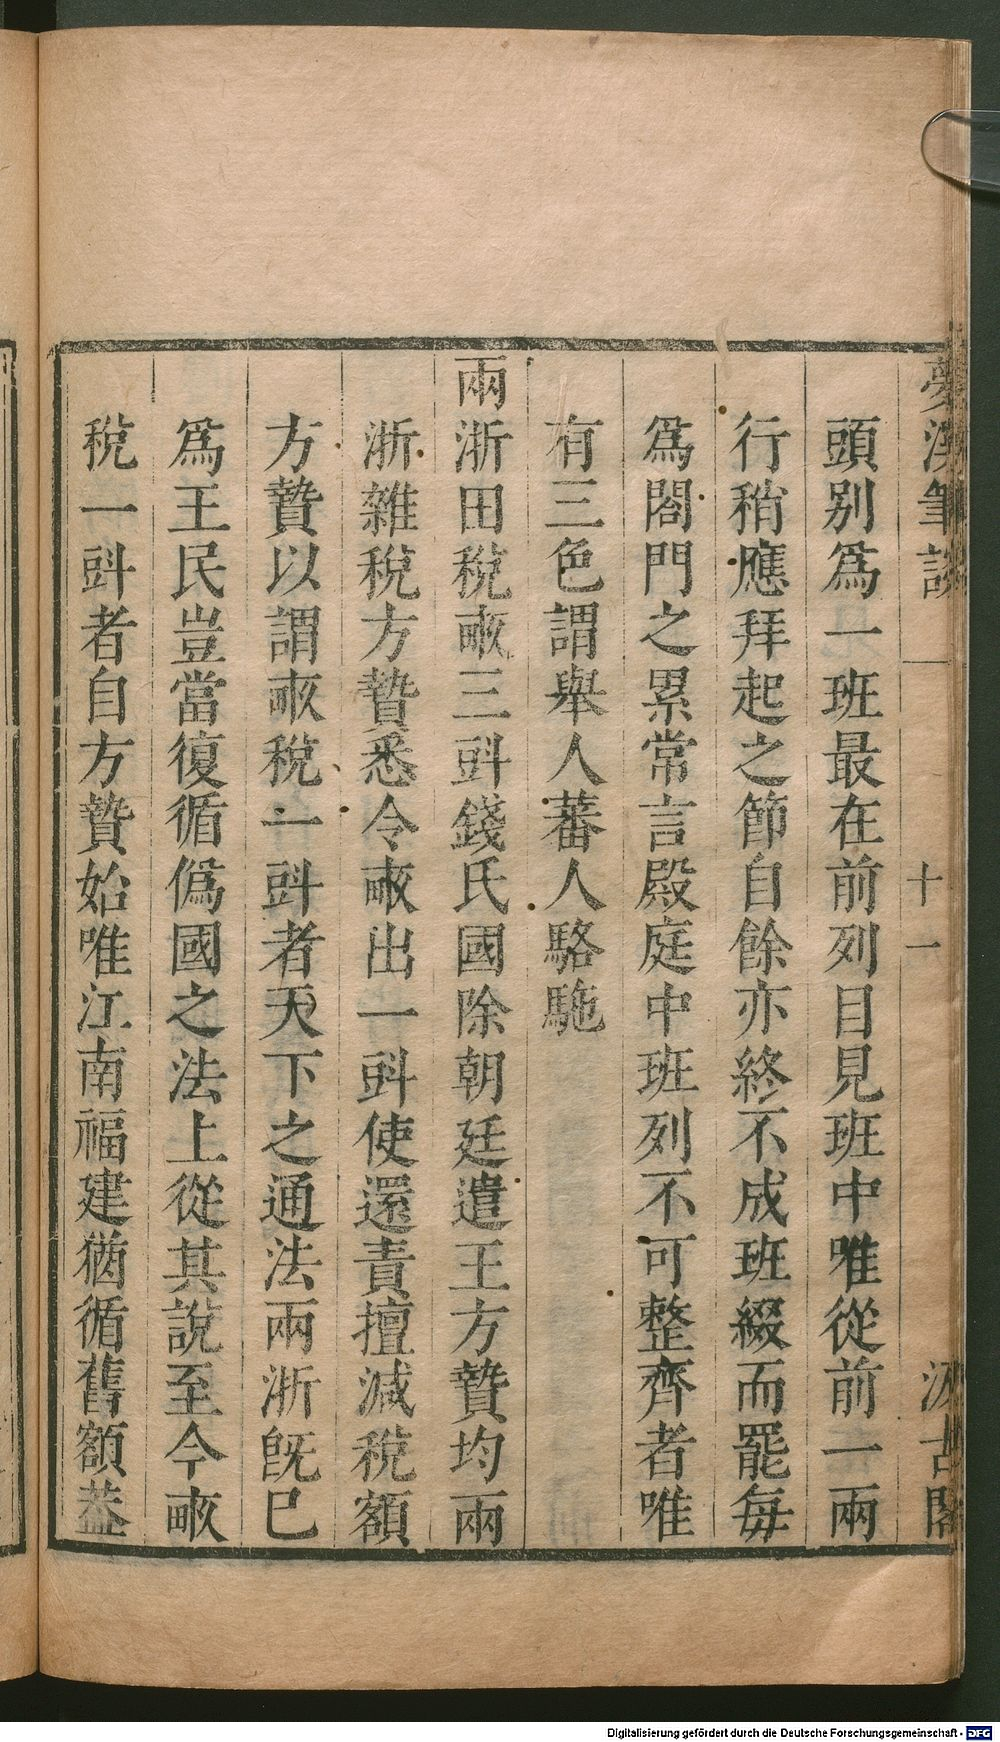 夢溪筆談 十一 汲古閣
頭別爲一班最在前列目見班中唯從前一兩
行稍應拜起之節自餘亦終不成班綴而罷毎
爲閤門之累常言殿庭中班列不可整齊者唯
有三色謂舉人蕃人駱駞
兩浙田稅畞三㪷錢氏國除朝廷遣王方贄均兩
浙雜稅方贄悉令畞出一㪷使還責擅減稅額
方贄以謂畞稅一㪷者天下之通法兩浙旣巳
爲王民豈當復循僞國之法上從其說至今畞
稅一㪷者自方贄始唯江南福建猶循舊額葢
Digitalisierung gefördert durch die Deutsche Forschungsgemeinschaft - DFG